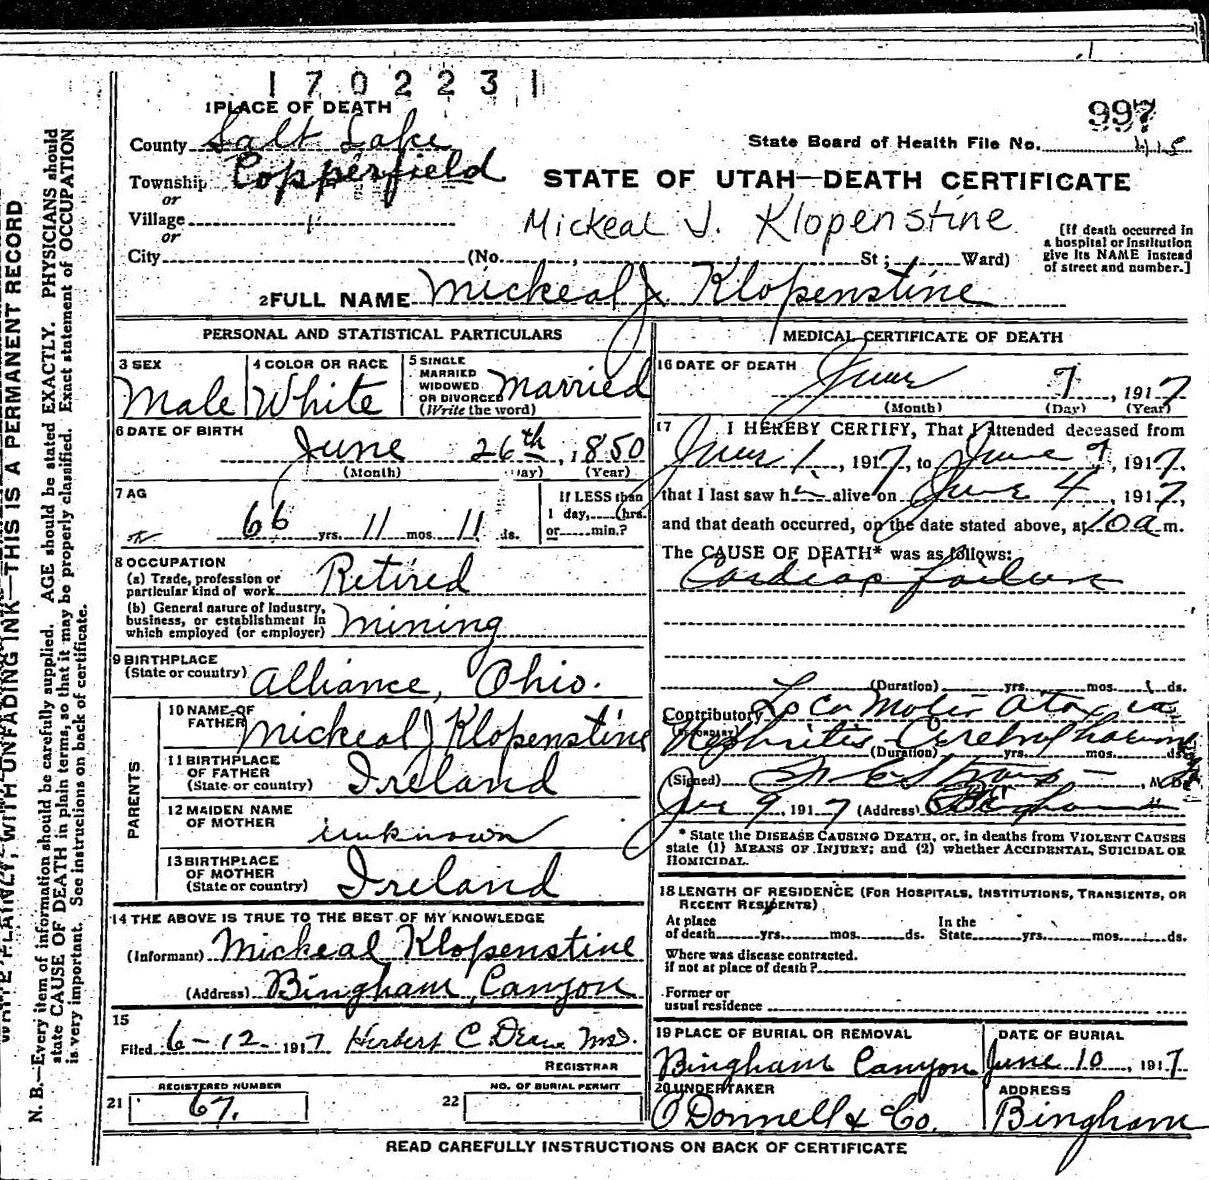 1702231
997
1 PLACE OF DEATH
County Salt Lake
State Board of Health File No. 415
Township Copperfield
or
STATE OF UTAH—DEATH CERTIFICATE
Village
or
Mickeal J. Klopenstine
City (No. , St ; Ward)
[If death occurred in
a hospital or institution
give its NAME instead
of street and number.]
2 FULL NAME Mickeal J Klopenstine
PERSONAL AND STATISTICAL PARTICULARS
3 SEX
Male
4 COLOR OR RACE
White
5 SINGLE
MARRIED
WIDOWED
OR DIVORCED
(Write the word)
Married
6 DATE OF BIRTH
June 26th, 1850
(Month) ay) (Year)
7 AG
66 yrs. 11 mos. 11 ds.
If LESS than
1 day, hrs.
or min.?
8 OCCUPATION
(a) Trade, profession or
particular kind of work Retired
(b) General nature of Industry,
business, or establishment in
which employed (or employer) Mining
9 BIRTHPLACE
(State or country) Alliance, Ohio.
PARENTS
10 NAME OF
FATHER Mickeal J Klopenstine
11 BIRTHPLACE
OF FATHER
(State or country) Ireland
12 MAIDEN NAME
OF MOTHER unknown
13 BIRTHPLACE
OF MOTHER
(State or country) Ireland
14 THE ABOVE IS TRUE TO THE BEST OF MY KNOWLEDGE
(Informant) Mickeal Klopenstine
(Address) Bingham Canyon
15
Filed 6-12- 1917 Herbert C Deane MD.
REGISTRAR
REGISTERED NUMBER
21 67.
NO. OF BURIAL PERMIT
22
MEDICAL CERTIFICATE OF DEATH
16 DATE OF DEATH
June 7, 1917
(Month) (Day) (Year)
17 I HEREBY CERTIFY, That I attended deceased from
June 1, 1917, to June 7, 1917.
that I last saw him alive on June 4, 1917,
and that death occurred, on the date stated above, at 10 a m.
The CAUSE OF DEATH* was as follows:
Cardiac failure
(Duration) yrs. mos. ds.
Contributory Loco Motir ataxia
Nephritis
(Duration) yrs. mos. ds.
(Signed)
9, 1917 (Address) Bingham
* State the DISEASE CAUSING DEATH, or, in deaths from VIOLENT CAUSES
state (1) MEANS OF INJURY; and (2) whether ACCIDENTAL, SUICIDAL OR
HOMICIDAL.
18 LENGTH OF RESIDENCE (FOR HOSPITALS, INSTITUTIONS, TRANSIENTS, OR
RECENT RESIDENTS)
At place
of death yrs. mos. ds.
In the
State yrs. mos. ds.
Where was disease contracted.
if not at place of death?
Former or
usual residence
19 PLACE OF BURIAL OR REMOVAL
Bingham Canyon
DATE OF BURIAL
June 10, 1917
20 UNDERTAKER
O'Donnell & Co.
ADDRESS
Bingham
READ CAREFULLY INSTRUCTIONS ON BACK OF CERTIFICATE
PLAINLY, WITH UNFADING INK—THIS IS A PERMANENT RECORD
N. B.—Every item of information should be carefully supplied. AGE should be stated EXACTLY. PHYSICIANS should
state CAUSE OF DEATH in plain terms, so that it may be properly classified. Exact statement of OCCUPATION
is very important. See instructions on back of certificate.